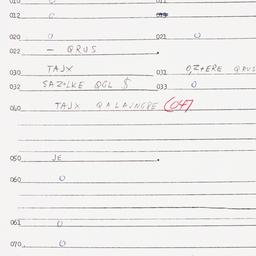 010 0 011
012 0
020 0 021 0
022 — QRUS
030 TAJX 031 0,Z+ERE QRUS
032 SAZ+LKE QGL $ 033 0
040 TAJX QALAJNGRE (04)
050 JE
060 0
061 0
070 0